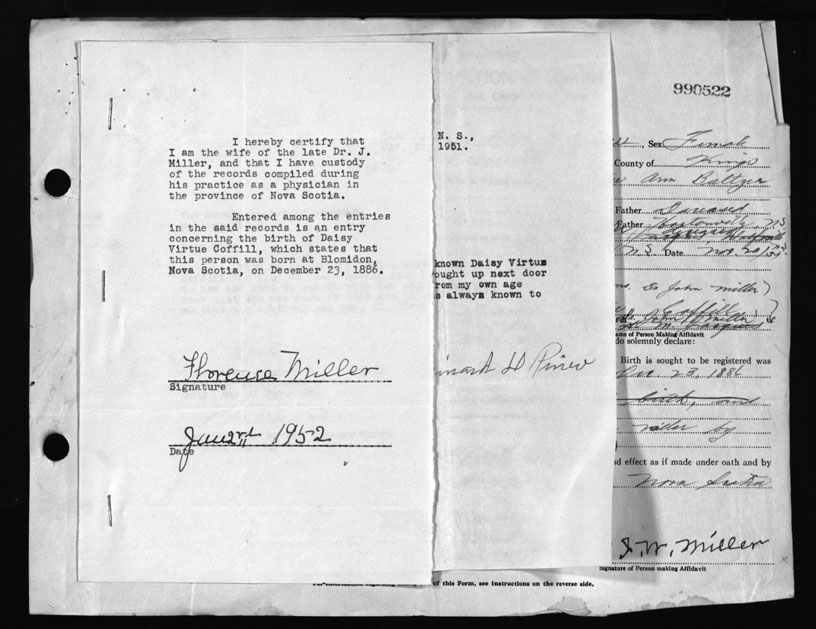 990522
I hereby certify that
I am the wife of the late Dr. J.
Miller, and that I have custody
of the records compiled during
his practice as a physician in
the province of Nova Scotia.
Entered among the entries
in the said records is an entry
concerning the birth of Daisy
Virtue Coffill, which states that
this person was born at Blomidon,
Nova Scotia, on December 23, 1886.
Florence Miller
Signature
Jan 2nd 1952
Date
N. S.,
1951.
known Daisy Virtue
ought up next door
rom my own age
s always known to
Sex Female
County of Kings
Ann Baltzer
Father Deceased
Father
N.S. Date
Dr John Miller)
me of Person Making Affidavit
do solemnly declare:
Birth is sought to be registered was
23, 1886
birth, and
Miller by
nd effect as if made under oath and by
Nova Scotia
J. W. Miller
Signature of Person making Affidavit
of this Form, see Instructions on the reverse side.